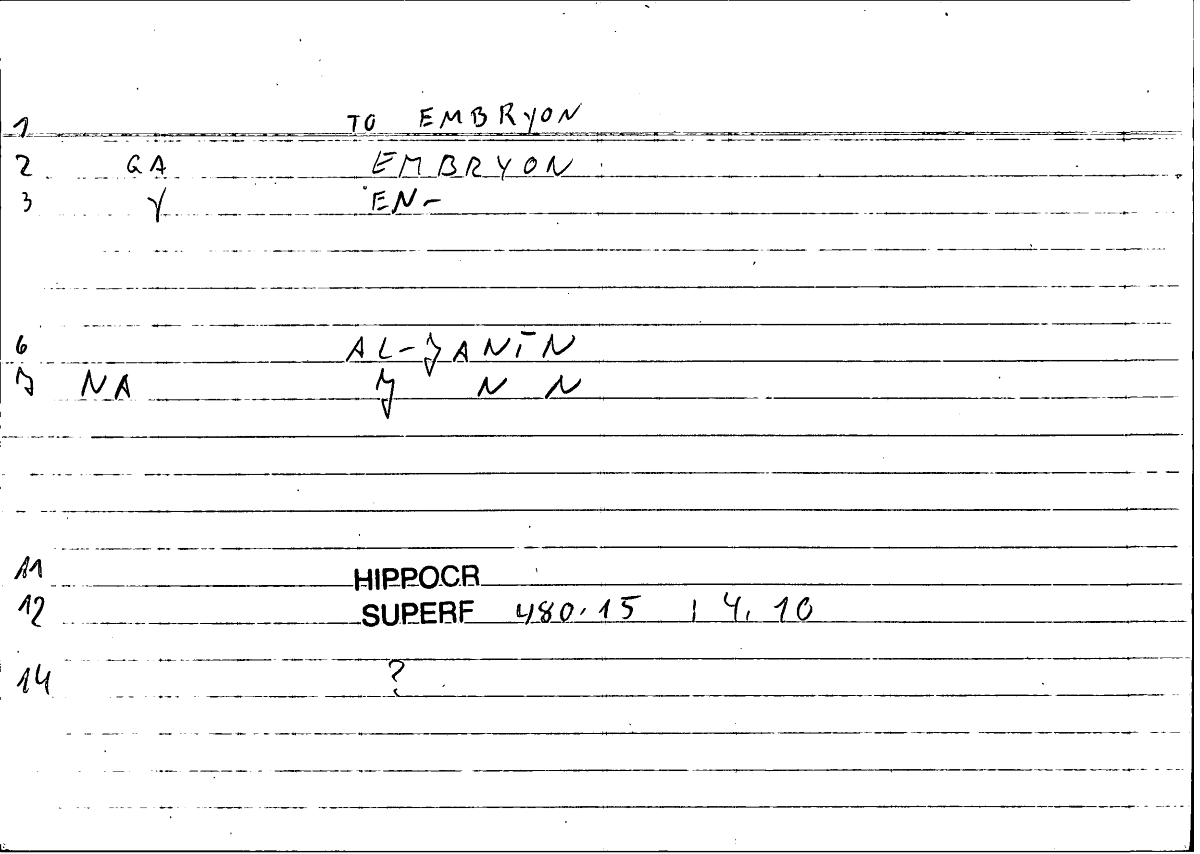 1 TO EMBRYON
2 GA EMBRYON
3 γ EN-
6 AL-JANĪN
7 NA J N N
11 HIPPOCR
12 SUPERF 480.15 | 4.10
14 ?